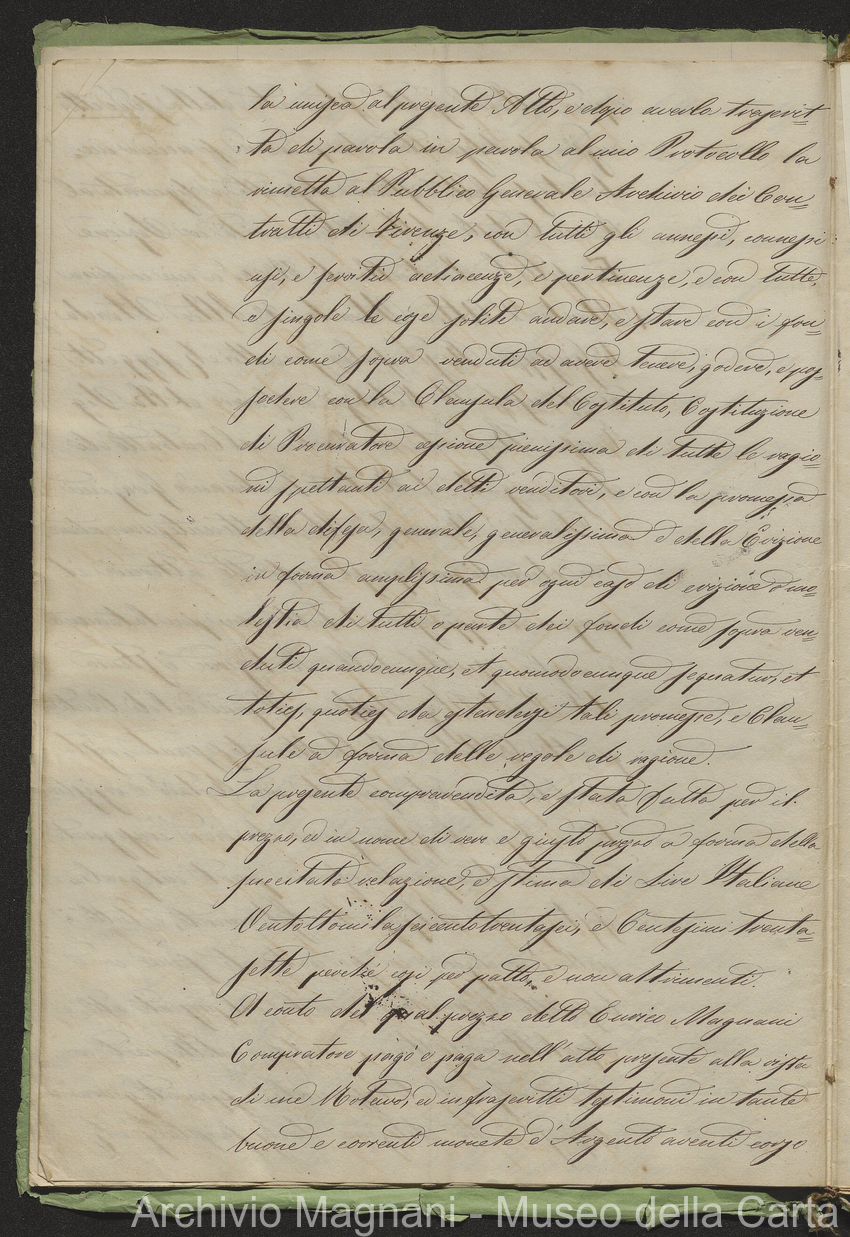 la unisca al presente Atto, e dopo averla trascrit=
ta di parola in parola al mio Protocollo la
rimetta al Pubblico Generale Archivio dei Con=
tratti di Firenze, con tutti gli annessi, connessi
usi, e servitù adiacenze, e pertinenze, e con tutte,
e singole le cose solite andare, e stare con i fon=
di come sopra venduti ad avere tenere, godere, e pos=
sedere con la Clausula del Costituto, Costituzione
di Procuratore cessione pienissima di tutte le ragio=
ni spettanti ai detti venditori, e con la promessa
della difesa, generale, generalissima e della Evizione
in forma amplissima per ogni caso di evizione o mo=
lestia di tutti o parte dei fondi come sopra ven=
duti quandocumque, et quomodocumque sequatur, et
toties, quoties da estendersi tali promesse, e Clau=
sule a forma delle regole di ragione.
La presente compravendita, è stata fatta per il
prezzo, ed in nome di vero e giusto prezzo a forma della
precitata relazione, e stima di Lire Italiane
Ventottomilaseicentotrentasei, e Centesimi trenta=
sette perchè così per patto, e non altrimenti.
A conto del qual prezzo detto Enrico Magnani
Compratore pagò e paga nell'atto presente alla vista
di me Notaro, ed infrascritti testimoni in tante
buone e correnti monete d'Argento aventi corso
Archivio Magnani - Museo della Carta